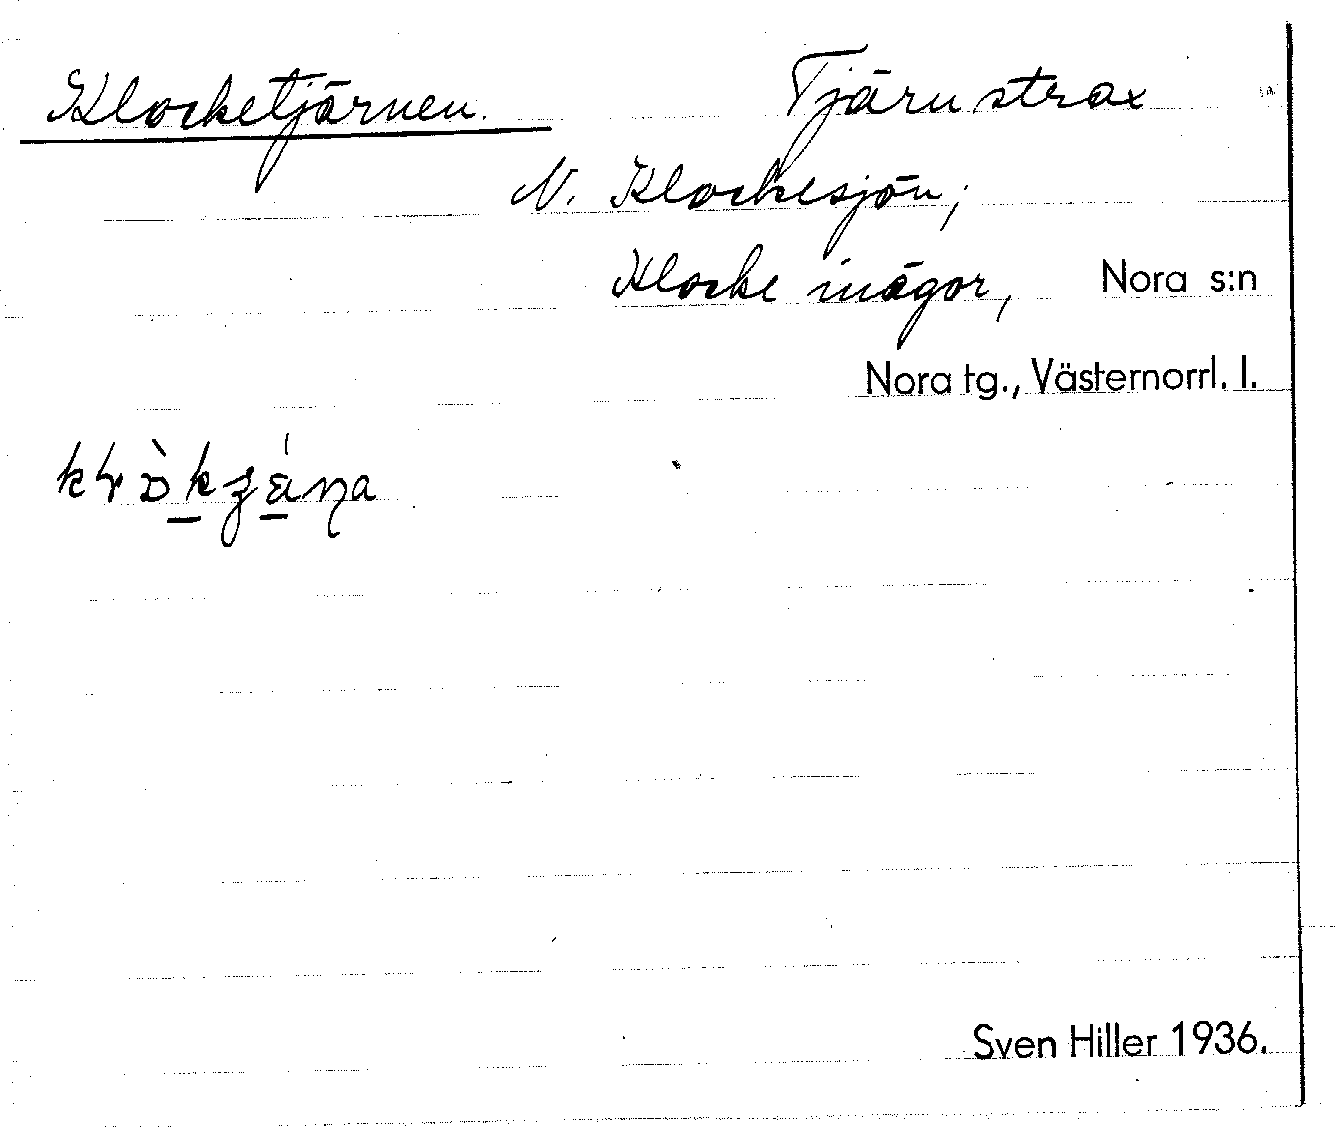 Klocketjärnen. Tjärn strax
N. Klockesjön;
Klocke inägor, Nora s:n
Nora tg., Västernorrl. l.
Sven Hiller 1936.